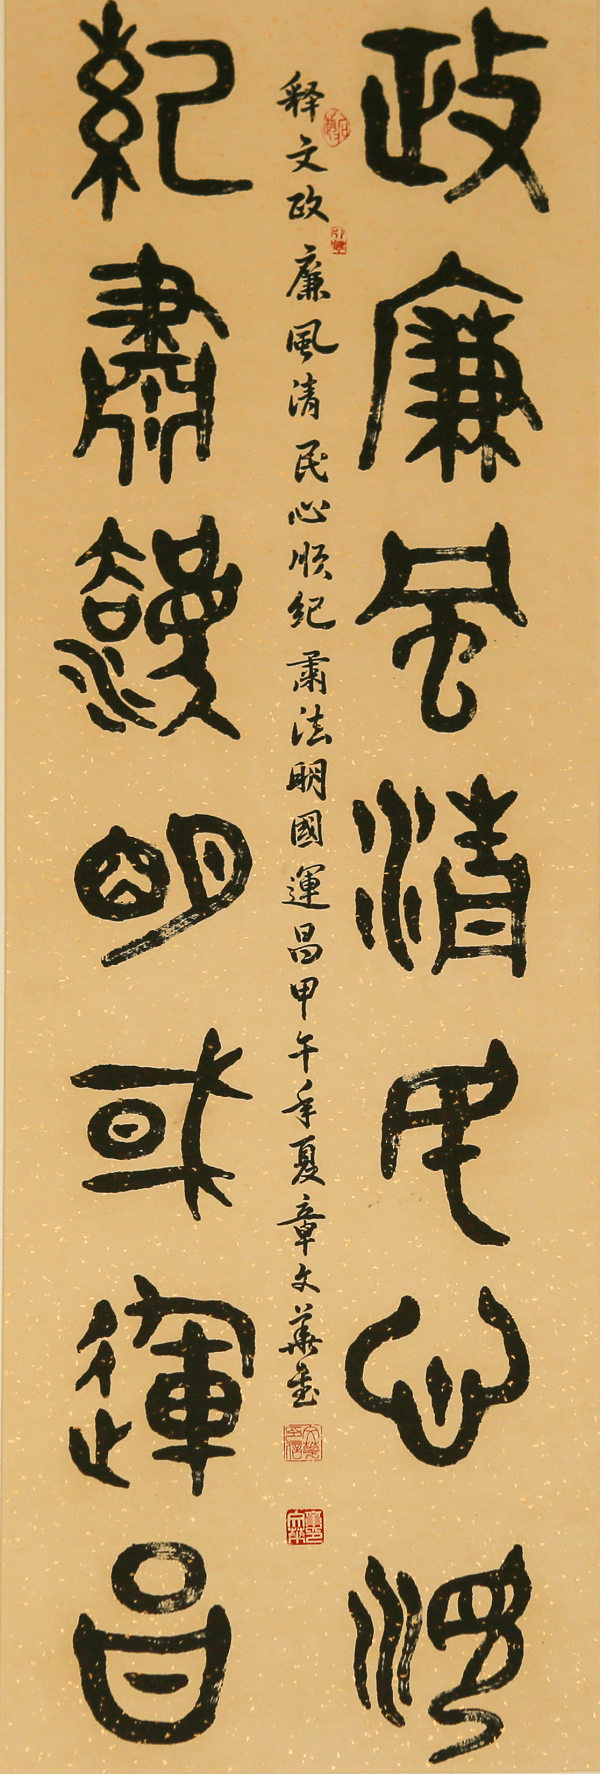 政廉風清民心順
释文政廉風清民心順紀肅法明國運昌甲午年夏章文華書
紀肅灋明或運昌